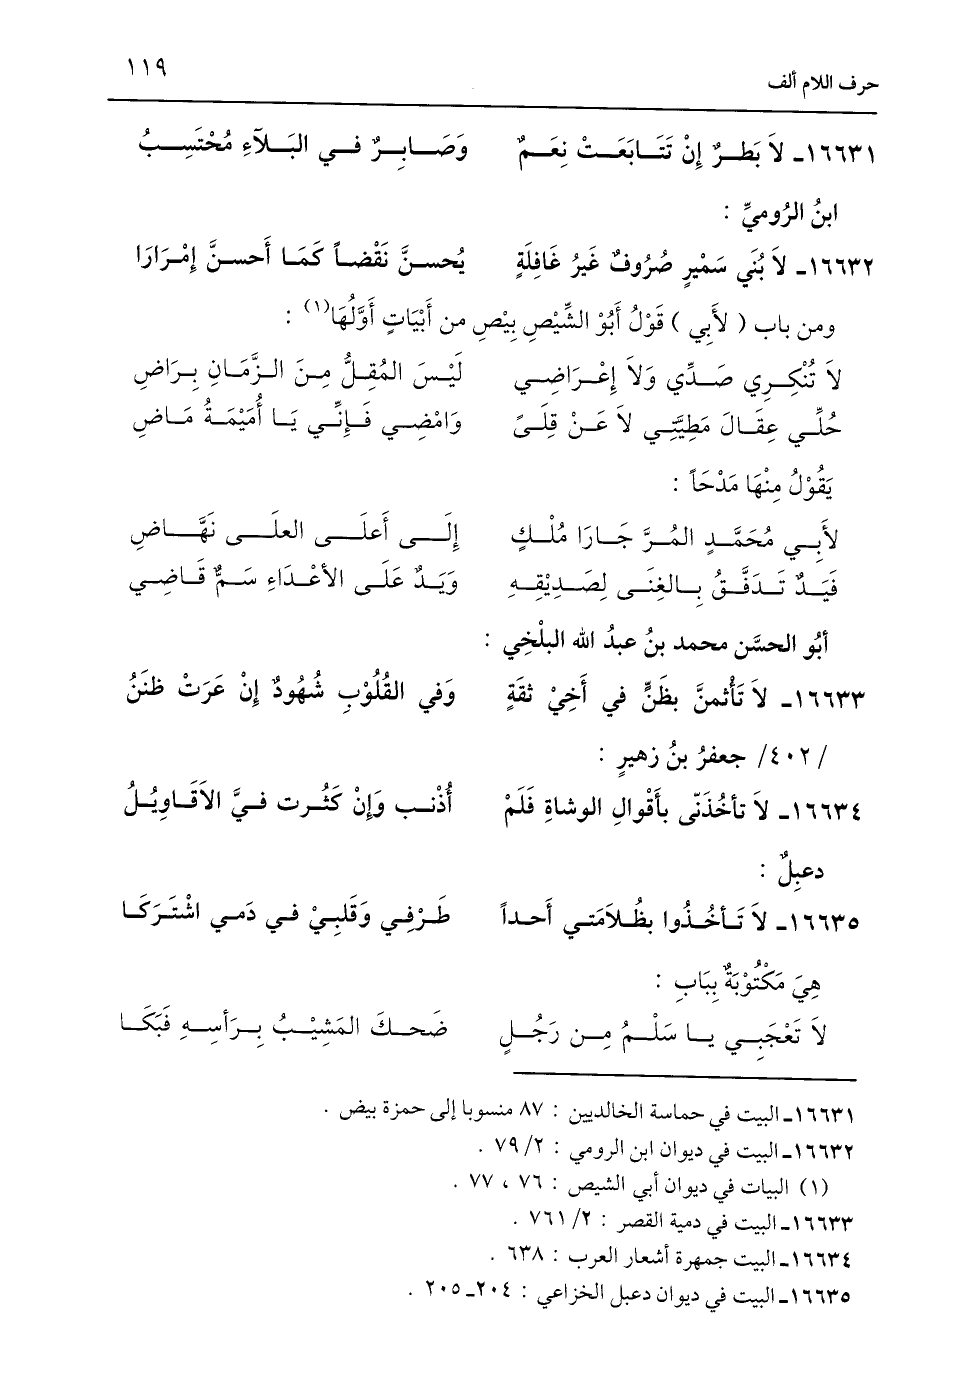 حرف اللام ألف ١١٩
١٦٦٣١ـ لاَ بَطـرٌ إِنْ تَتَـابَعَـتْ نِعَـمٌ وَصَـابِـرٌ فـي البَـلآءِ مُحْتَسِـبُ
ابنُ الرُوميِّ :
١٦٦٣٢ـ لاَ بُنَي سَمْيرٍ صُرُوفٌ غَيرُ غَافِلَةٍ يُحسـنَّ نَقْضـاً كَمَـا أَحسـنَّ إِمْـرَارَا
ومن باب ( لأَبي ) قَوْلُ أَبُوْ الشِّيْصِ بِيْصِ من أَبْيَاتٍ أَوَّلُهَا(١) :
لاَ تُنْكِـري صَـدِّي وَلاَ إِعْـرَاضِـي لَيْسَ المُقِلُّ مِـنَ الـزَّمَـانِ بِـرَاضِ
حُلِّـي عِقَـالَ مَطِيَّتِـي لاَ عَـنْ قِلَـىً وَامْضِـي فَـإِنِّـي يَـا أُمَيْمَـةُ مَـاضِ
يَقُوْلُ مِنْهَا مَدْحَاً :
لأَبِـي مُحَمَّـدٍ المُـرَّ جَـارَا مُلْـكٍ إِلَـى أَعلَـى العلَـى نَهَّـاضِ
فَيَـدٌ تَـدَفَّـقُ بِـالغِنَـى لِصَـدِيْقِـهِ وَيَـدٌ عَلَـى الأَعْـدَاءِ سَـمٌّ قَـاضِـي
أَبُو الحسَّن محمد بنُ عبدُ الله البلْخِي :
١٦٦٣٣ـ لاَ تَأْثمنَّ بظَنٍّ في أَخِيْ ثقَةٍ وَفي القُلُوْبِ شُهُودٌ إِنْ عَرَتْ ظنَنُ
/ ٤٠٢/ جعفرُ بنُ زهيرٍ :
١٦٦٣٤ـ لاَ تأخُذَنّى بأَقْوالِ الوشاةِ فَلَمْ أُذْنـب وَإِنْ كَثُـرت فـيَّ الأَقَـاويْـلُ
دعبِلٌ :
١٦٦٣٥ـ لاَ تَـأخُـذُوا بظُـلاَمَتـي أَحـداً طَـرْفِي وَقَلبِيْ فـي دَمـي اشْتَـرَكَـا
هِيَ مَكْتُوْبَةٌ بِبَابِ :
لاَ تَعْجَبِـي يـا سَلْـمُ مِـن رَجُـلٍ ضَحـكَ المَشِيْـبُ بِـرَأسِـهِ فَبَكَـا
١٦٦٣١ـ البيت في حماسة الخالديين : ٨٧ منسوبا إلى حمزة بيض .
١٦٦٣٢ـ البيت في ديوان ابن الرومي : ٢/ ٧٩ .
(١) البيات في ديوان أبي الشيص : ٧٦ ، ٧٧ .
١٦٦٣٣ـ البيت في دمية القصر : ٢/ ٧٦١ .
١٦٦٣٤ـ البيت جمهرة أشعار العرب : ٦٣٨ .
١٦٦٣٥ـ البيت في ديوان دعبل الخزاعي : ٢٠٤ـ٢٠٥ .